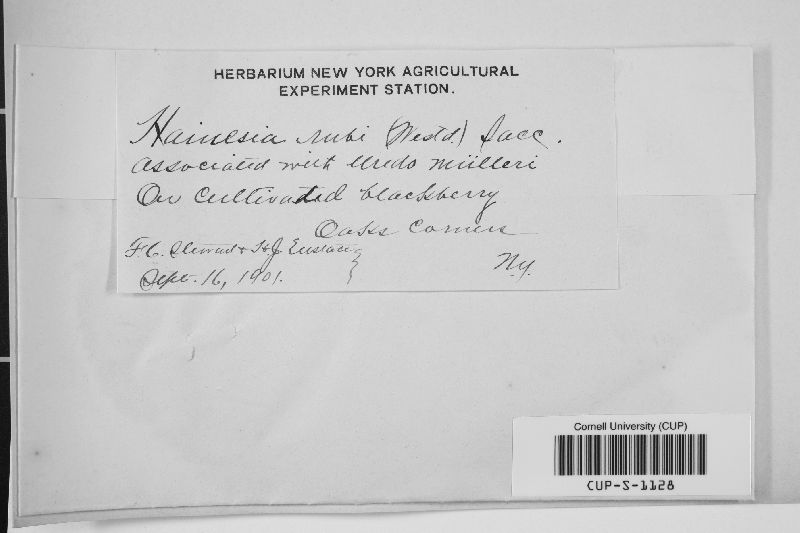 HERBARIUM NEW YORK AGRICULTURAL
EXPERIMENT STATION.
Hainesia rubi (Westd.) Sacc.
Associated with Uredo mülleri
On cultivated blackberry
Oaks Corners
F.C. Stewart & H.J. Eustace
N.Y.
Sept. 16, 1901.
Cornell University (CUP)
CUP-S-1128